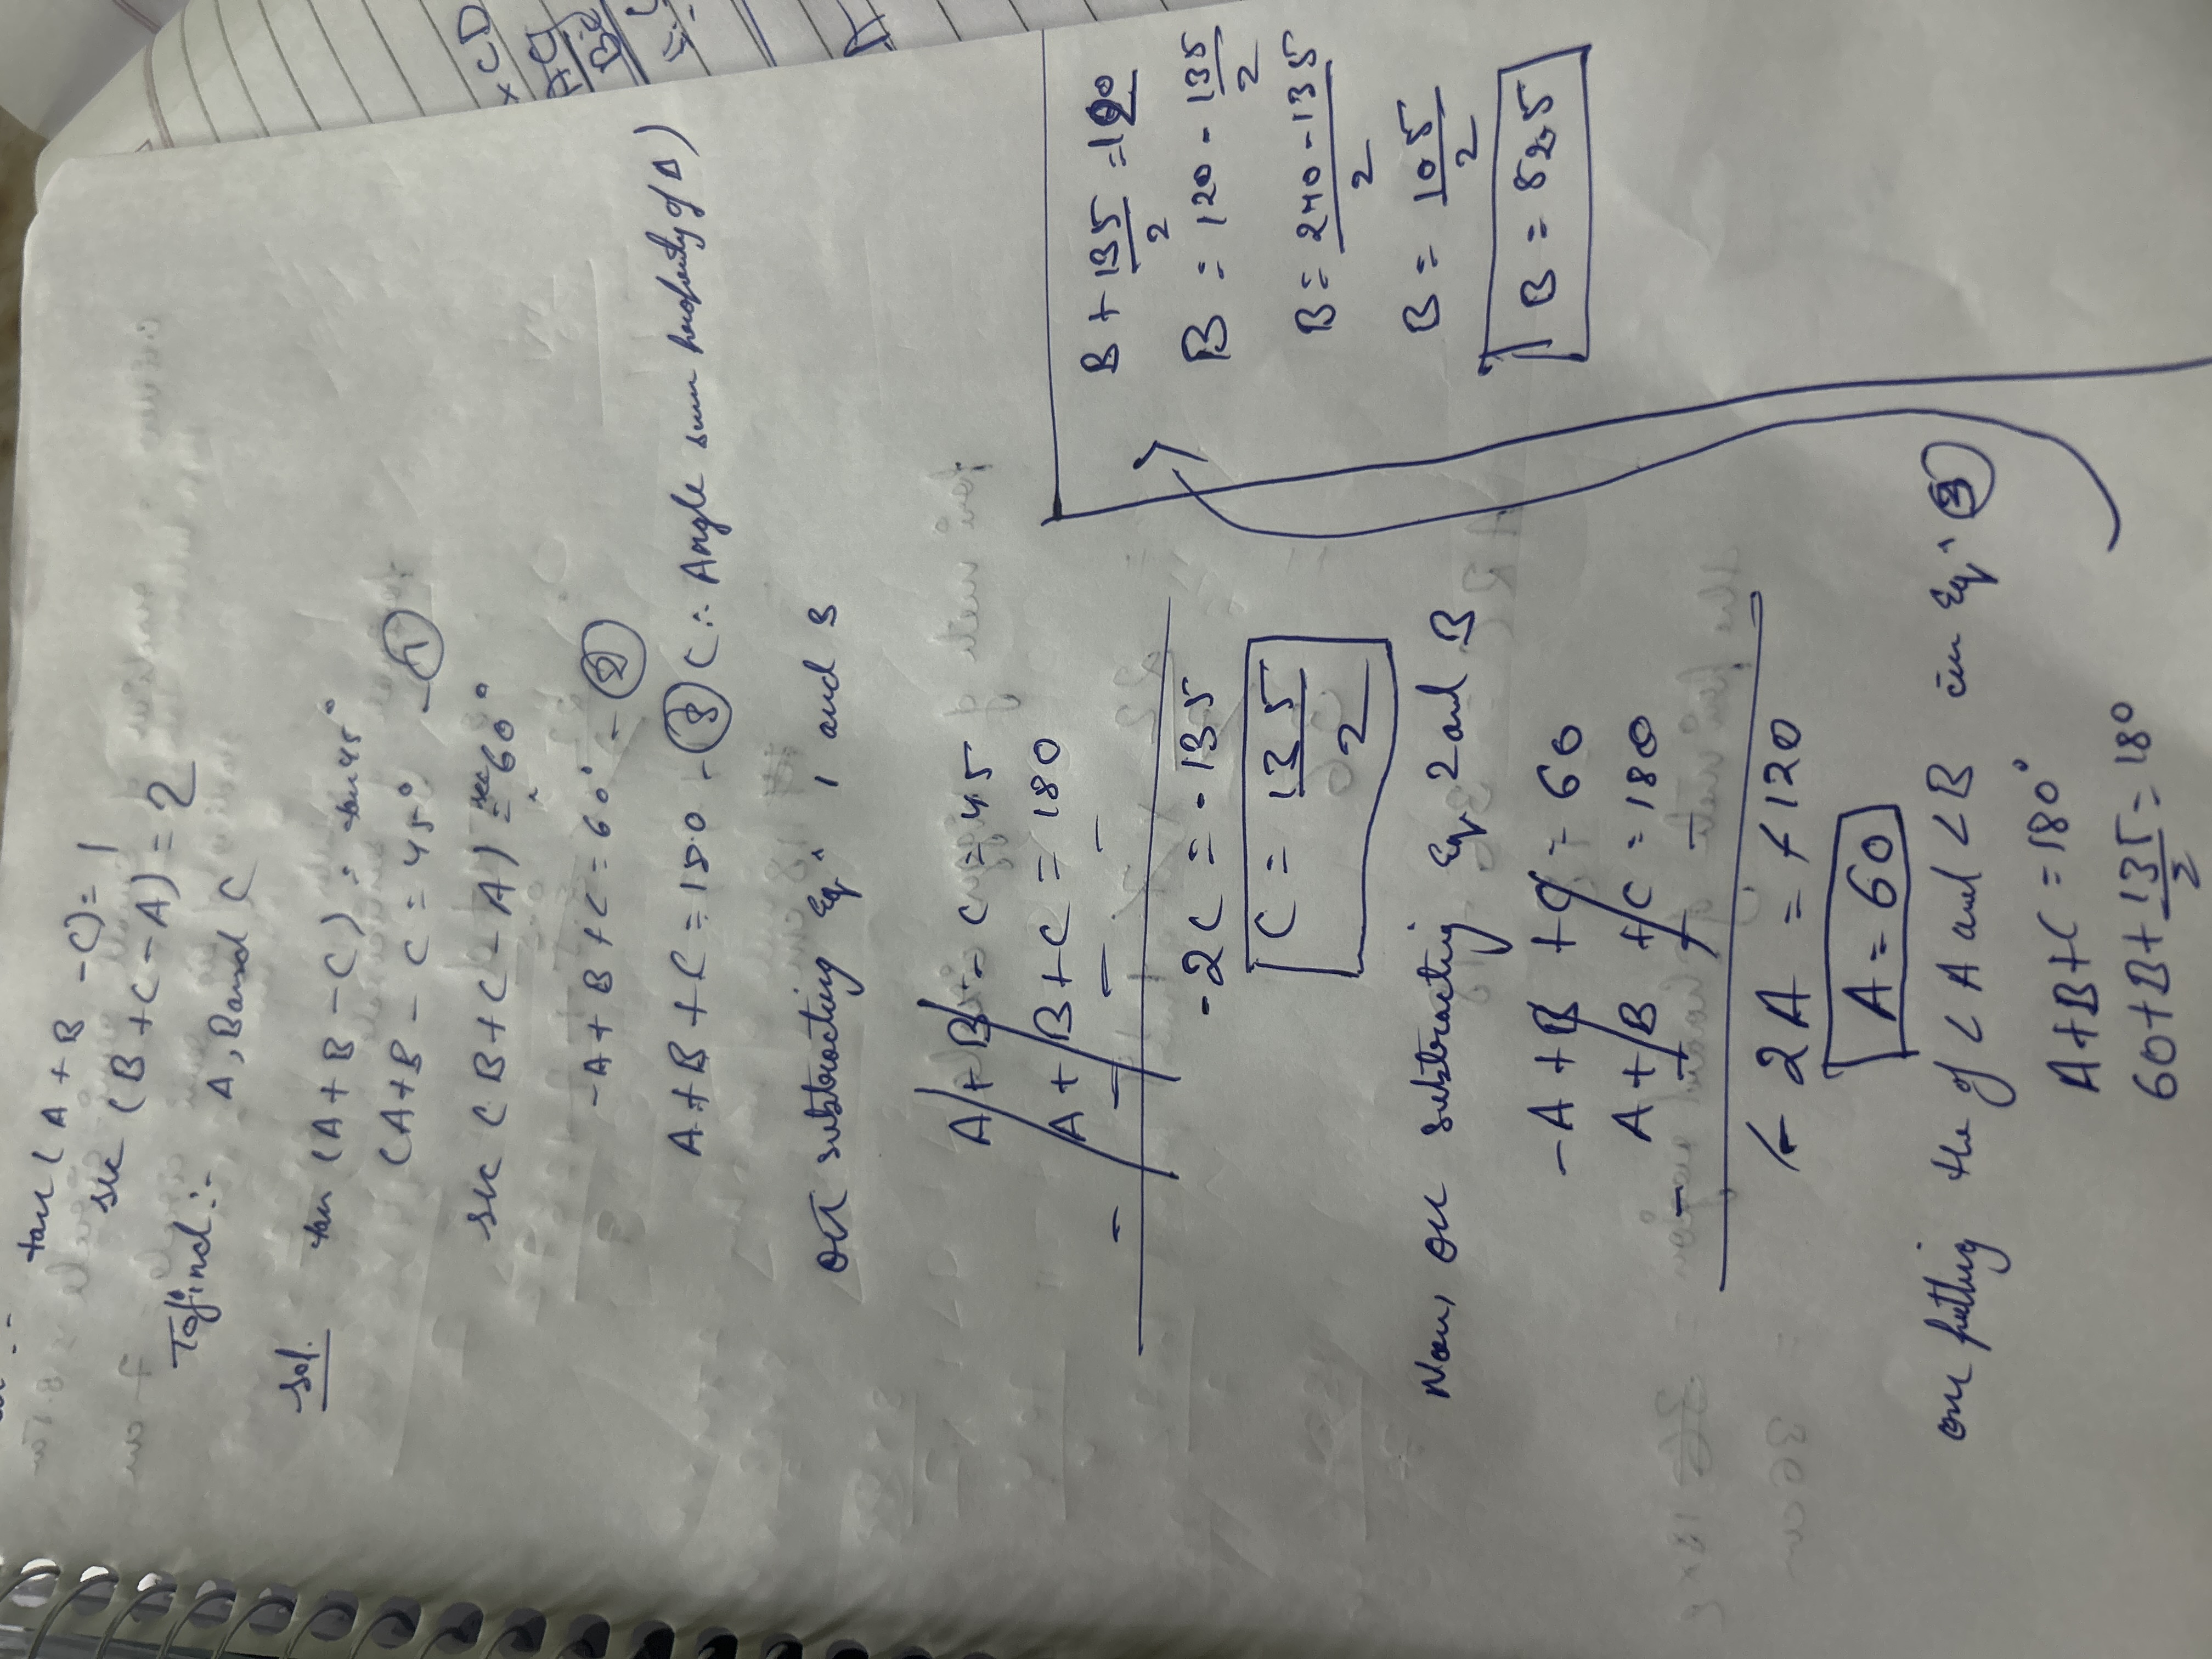 tan (A + B - C) = 1
sec (B + C - A) = 2
To find :- A, B and C
Sol. tan (A + B - C) = tan 45°
(A + B - C = 45° - ①
sec (B + C - A) = sec 60°
- A + B + C = 60° - ②
A + B + C = 180 - ③ (∴ Angle sum property of Δ)
on substracting Eq. 1 and 3
A + B - C = 45
A + B + C = 180
- - - -
-2C = -135
C = 135/2
Now, on substracting Eq. 2 and 3
- A + B + C = 60
A + B + C = 180
- 2A = -120
A = 60
on putting the of < A and < B in Eq. ③
A + B + C = 180°
60 + B + 135/2 = 180
B + 135/2 = 120
B = 120 - 135/2
B = 240 - 135/2
B = 105/2
B = 52.5
× CD